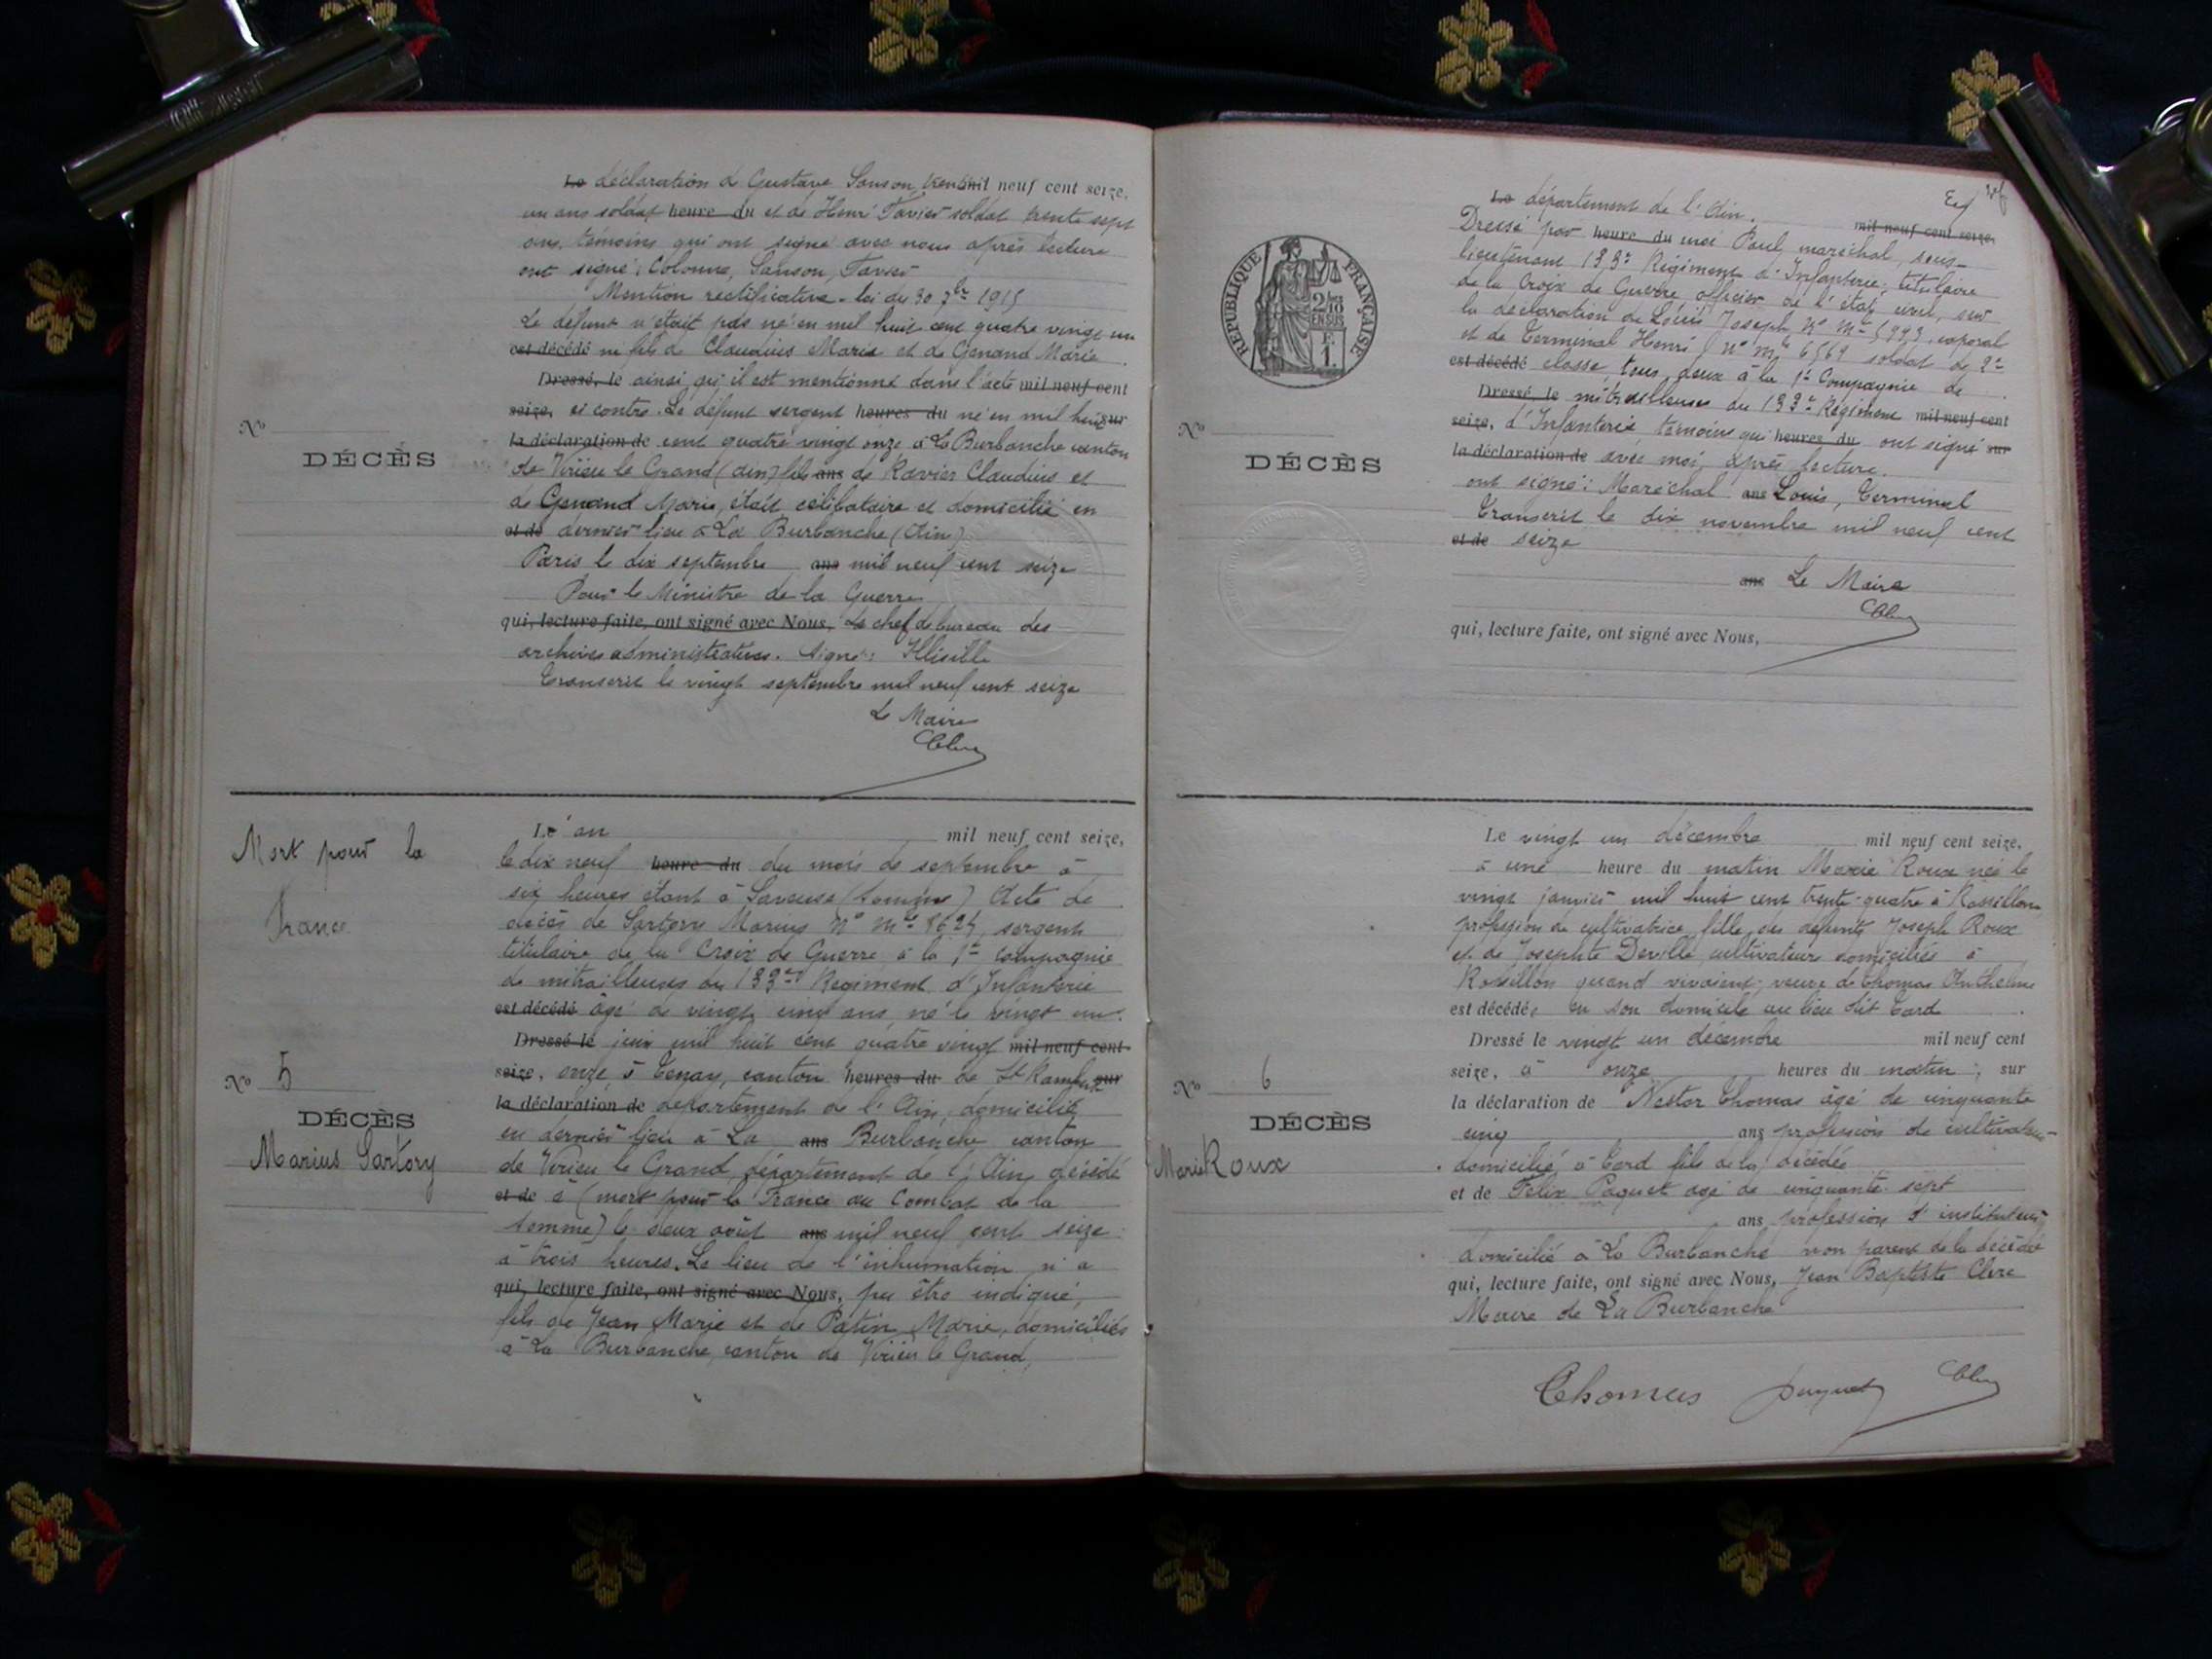 Le déclaration de Gustave Sanson, trente mil neuf cent seize.
un ans soldat heure du et de Henri Tavier soldat trente sept
ans, témoins qui ont signé avec nous après lecture
ont signé : Colonna, Sanson, Tavier
Mention rectificative - loi du 30 7bre 1915
Le défunt n'était pas né en mil huit cent quatre vingt un
est décédé ni fils de Claudius Marie et de Genand Marie.
Dressé, le ainsi qu'il est mentionné dans l'acte mil neuf cent
seize, ci contre. Le défunt sergent heures du né en mil huit sur
la déclaration de cent quatre vingt onze à La Burbanche canton
de Virieu le Grand (Ain) fils ans de Ravier Claudius et
de Genand Marie, était célibataire et domicilié en
et de dernier lieu à La Burbanche (Ain)
Paris le dix septembre ans mil neuf cent seize
Pour le Ministre de la Guerre
qui, lecture faite, ont signé avec Nous, Le chef de bureau des
archives administratives. Signé : Illisible
Transcrit le vingt septembre mil neuf cent seize
Le Maire
Clerc
No
DÉCÈS
Mort pour la
France
No 5
DÉCÈS
Marius Sartory
Le an mil neuf cent seize,
le dix neuf heure du du mois de septembre à
six heures étant à Saveuse (Somme) Acte de
décès de Sartory Marius No Mle 8624, sergent
titulaire de la Croix de Guerre à la 1re compagnie
de mitrailleuses du 133me Régiment d'Infanterie
est décédé âgé de vingt cinq ans, né le vingt un
Dressé le juin mil huit cent quatre vingt mil neuf cent
seize, onze à Tenay, canton heures du de St Rambert sur
la déclaration de département de l'Ain, domicilié
en dernier lieu à La ans Burbanche canton
de Virieu le Grand, département de l'Ain, décédé
et de à (mort pour la France au Combat de la
Somme) le deux août ans mil neuf cent seize
à trois heures. Le lieu de l'inhumation n'a
qui, lecture faite, ont signé avec Nous, pu être indiqué,
fils de Jean Marie et de Patin Marie, domiciliés
à La Burbanche, canton de Virieu le Grand,
Le département de l'Ain. mil neuf cent seize,
Dressé par heure du moi Paul, maréchal, sous-
lieutenant 133e Régiment d'Infanterie, titulaire
de la Croix de Guerre, officier de l'état civil, sur
la déclaration de Louis Joseph, No Mle 5993, caporal
et de Terminal Henri No Mle 6569 soldat de 2e
est décédé classe, tous deux à la 1re Compagnie de
Dressé, le mitrailleuses du 133e Régiment mil neuf cent
seize, d'Infanterie témoins qui heures du ont signé sur
la déclaration de avec moi, après lecture.
ont signé : Maréchal ans Louis, Terminal
Transcrit le dix novembre mil neuf cent
et de seize
ans Le Maire
Clerc
qui, lecture faite, ont signé avec Nous,
RÉPUBLIQUE FRANÇAISE
2/10
EN SUS
1 F.
No
DÉCÈS
No 6
DÉCÈS
Marie Roux
Le vingt un décembre mil neuf cent seize,
à une heure du matin Marie Roux née le
vingt janvier mil huit cent trente-quatre à Rossillon
profession de cultivatrice, fille des défunts Joseph Roux
et de Josephte Deville cultivateurs domiciliés à
Rossillon quand vivaient, veuve de Thomas Anthelme
est décédée en son domicile au lieu dit Tard
Dressé le vingt un décembre mil neuf cent
seize, à onze heures du matin, sur
la déclaration de Nestor Thomas âgé de cinquante
cinq ans profession de cultivateur
domicilié à Tard fils de la décédée
et de Félix Paquet âgé de cinquante sept
ans, profession d'instituteur
domicilié à La Burbanche non parent de la décédée
qui, lecture faite, ont signé avec Nous, Jean Baptiste Clerc
Maire de La Burbanche
Thomas Paquet Clerc